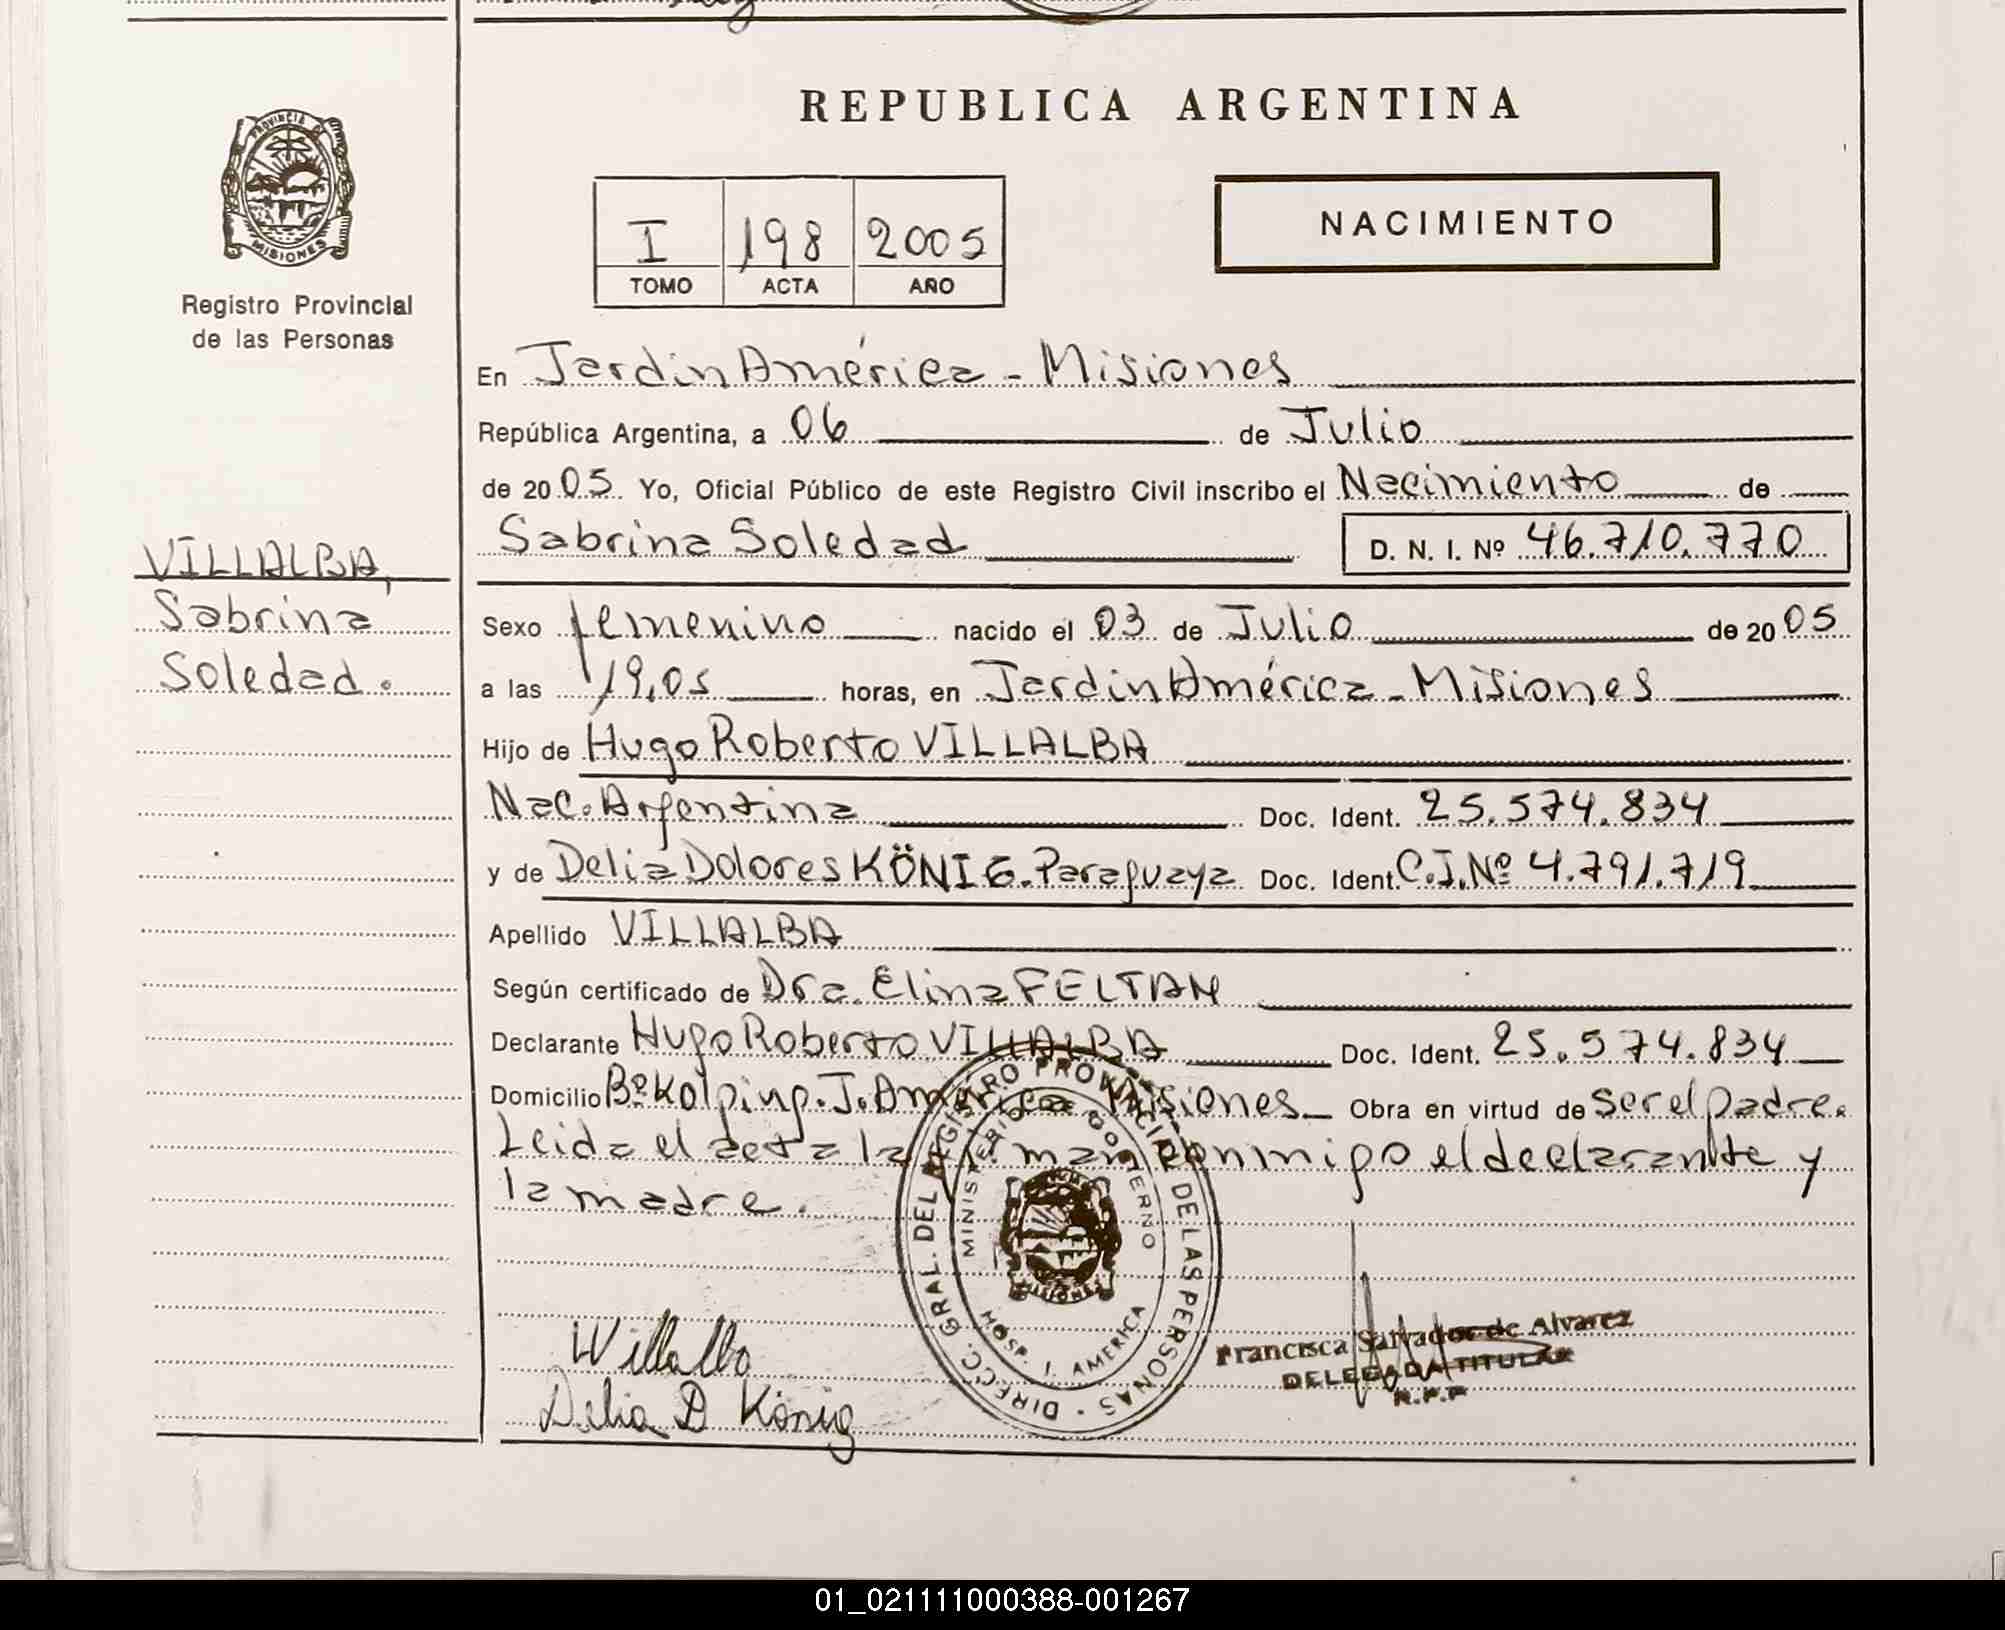 REPUBLICA ARGENTINA
PROVINCIA DE
MISIONES
Registro Provincial
de las Personas
I 198 2005
TOMO ACTA AÑO
NACIMIENTO
En Jardín América - Misiones
República Argentina, a 06 de Julio
de 2005 Yo, Oficial Público de este Registro Civil inscribo el Nacimiento de
Sabrina Soledad D. N. I. Nº 46.710.770
VILLALBA,
Sabrina
Soledad.
Sexo femenino nacido el 03 de Julio de 2005
a las 19,05 horas, en Jardín América - Misiones
Hijo de Hugo Roberto VILLALBA
Nac. Argentina Doc. Ident. 25.574.834
y de Delia Dolores KÖNIG. Paraguaya Doc. Ident. C.I. Nº 4.791.719
Apellido VILLALBA
Según certificado de Dra. Elina FELTAN
Declarante Hugo Roberto VILLALBA Doc. Ident. 25.574.834
Domicilio Bº Kolping. J. América Misiones Obra en virtud de ser el padre.
Leida el acta la firman conmigo el declarante y
la madre.
DIRECC. GRAL. DEL REGISTRO PROVINCIAL DE LAS PERSONAS
MINISTERIO DE GOBIERNO
HOSP. J. AMERICA
Villalba
Delia D König
Francisca Salvador de Alvarez
DELEGADA TITULAR
R.P.P
01_021111000388-001267